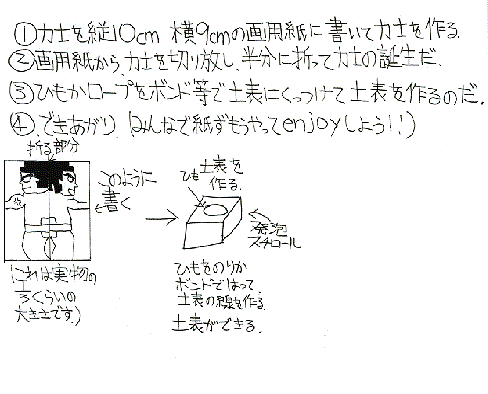 ①力士を縦10cm 横9cmの画用紙に書いて力士を作る.
②画用紙から力士を切り放し,半分に折って力士の誕生だ.
③ひもかロープをボンド等で土表にくっつけて土表を作るのだ.
④.できあがり(みんなで紙ずもうやってenjoyしよう!!)
折る部分
このように
書く
(これは実物の
1/3くらいの
大きさです)
ひも
土表を
作る.
発泡
スチロール
ひもをのりか
ボンドではって
土表の線を作る.
土表ができる.